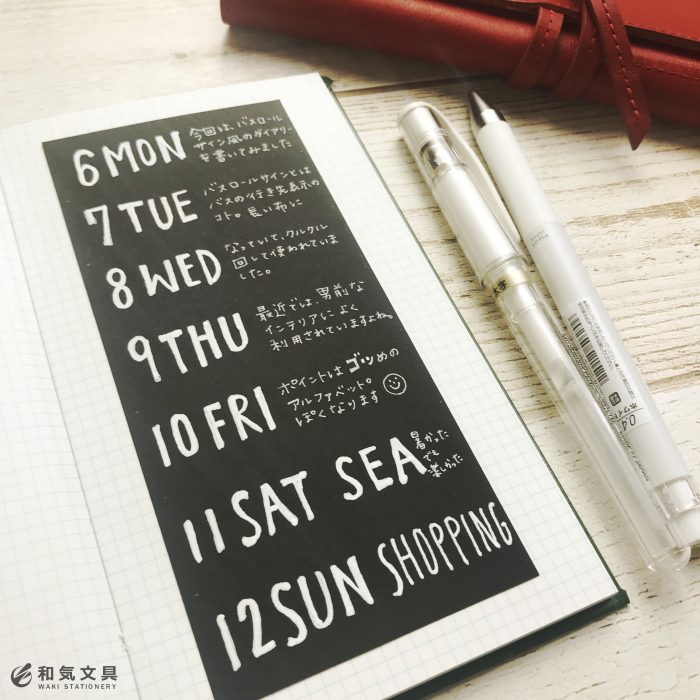 6 MON
今回は、バスロール
サイン風のダイアリー
を書いてみました
7 TUE
バスロールサインとは
バスの行き先表示の
コト。長い布に
8 WED
なっていて、クルクル
回して使われていま
した。
9 THU
最近では、男前な
インテリアによく
利用されていますよね。
10 FRI
ポイントはゴツめの
アルファベット。
ぽくなります
11 SAT SEA
暑かった
でも
楽しかった
12 SUN SHOPPING
太字
PILOT
0.4
ホワイト
和気文具
WAKI STATIONERY